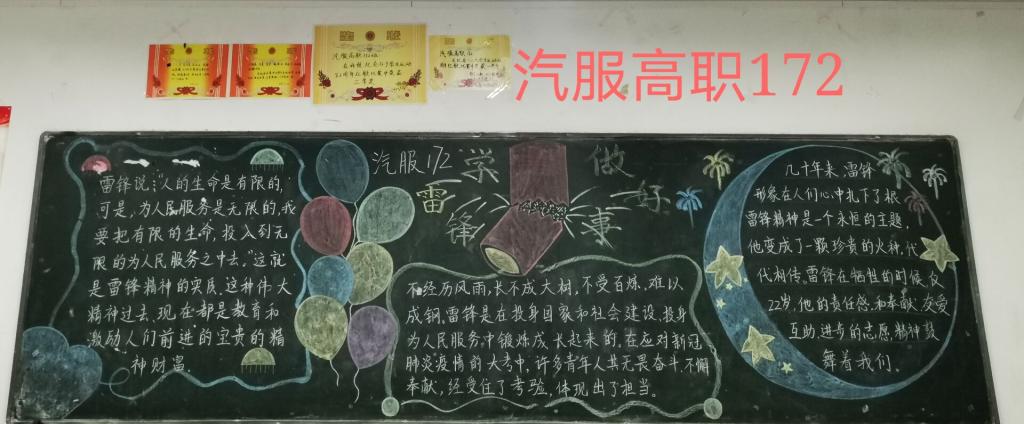 汽服高职172
汽服172
学
做
雷
好
锋
事
雷锋说:"人的生命是有限的,
可是,为人民服务是无限的,我
要把有限的生命,投入到无
限的为人民服务之中去。"这就
是雷锋精神的实质,这种伟大
精神过去、现在都是教育和
激励人们前进的宝贵的精
神财富.
不经历风雨,长不成大树,不受百炼,难以
成钢。雷锋是在投身国家和社会建设,投身
为人民服务,中锻炼成长起来的。在应对新冠
肺炎疫情的大考中,许多青年人共无畏奋斗不懈
奉献,经受住了考验,体现出了担当。
几十年来,雷锋
形象在人们心中扎下了根
雷锋精神是一个永恒的主题,
他变成了一颗珍贵的火种,代
代相传。雷锋在牺牲的时候仅
22岁,他的责任感,和奉献,友爱
互助,进步的志愿,精神鼓
舞着我们。